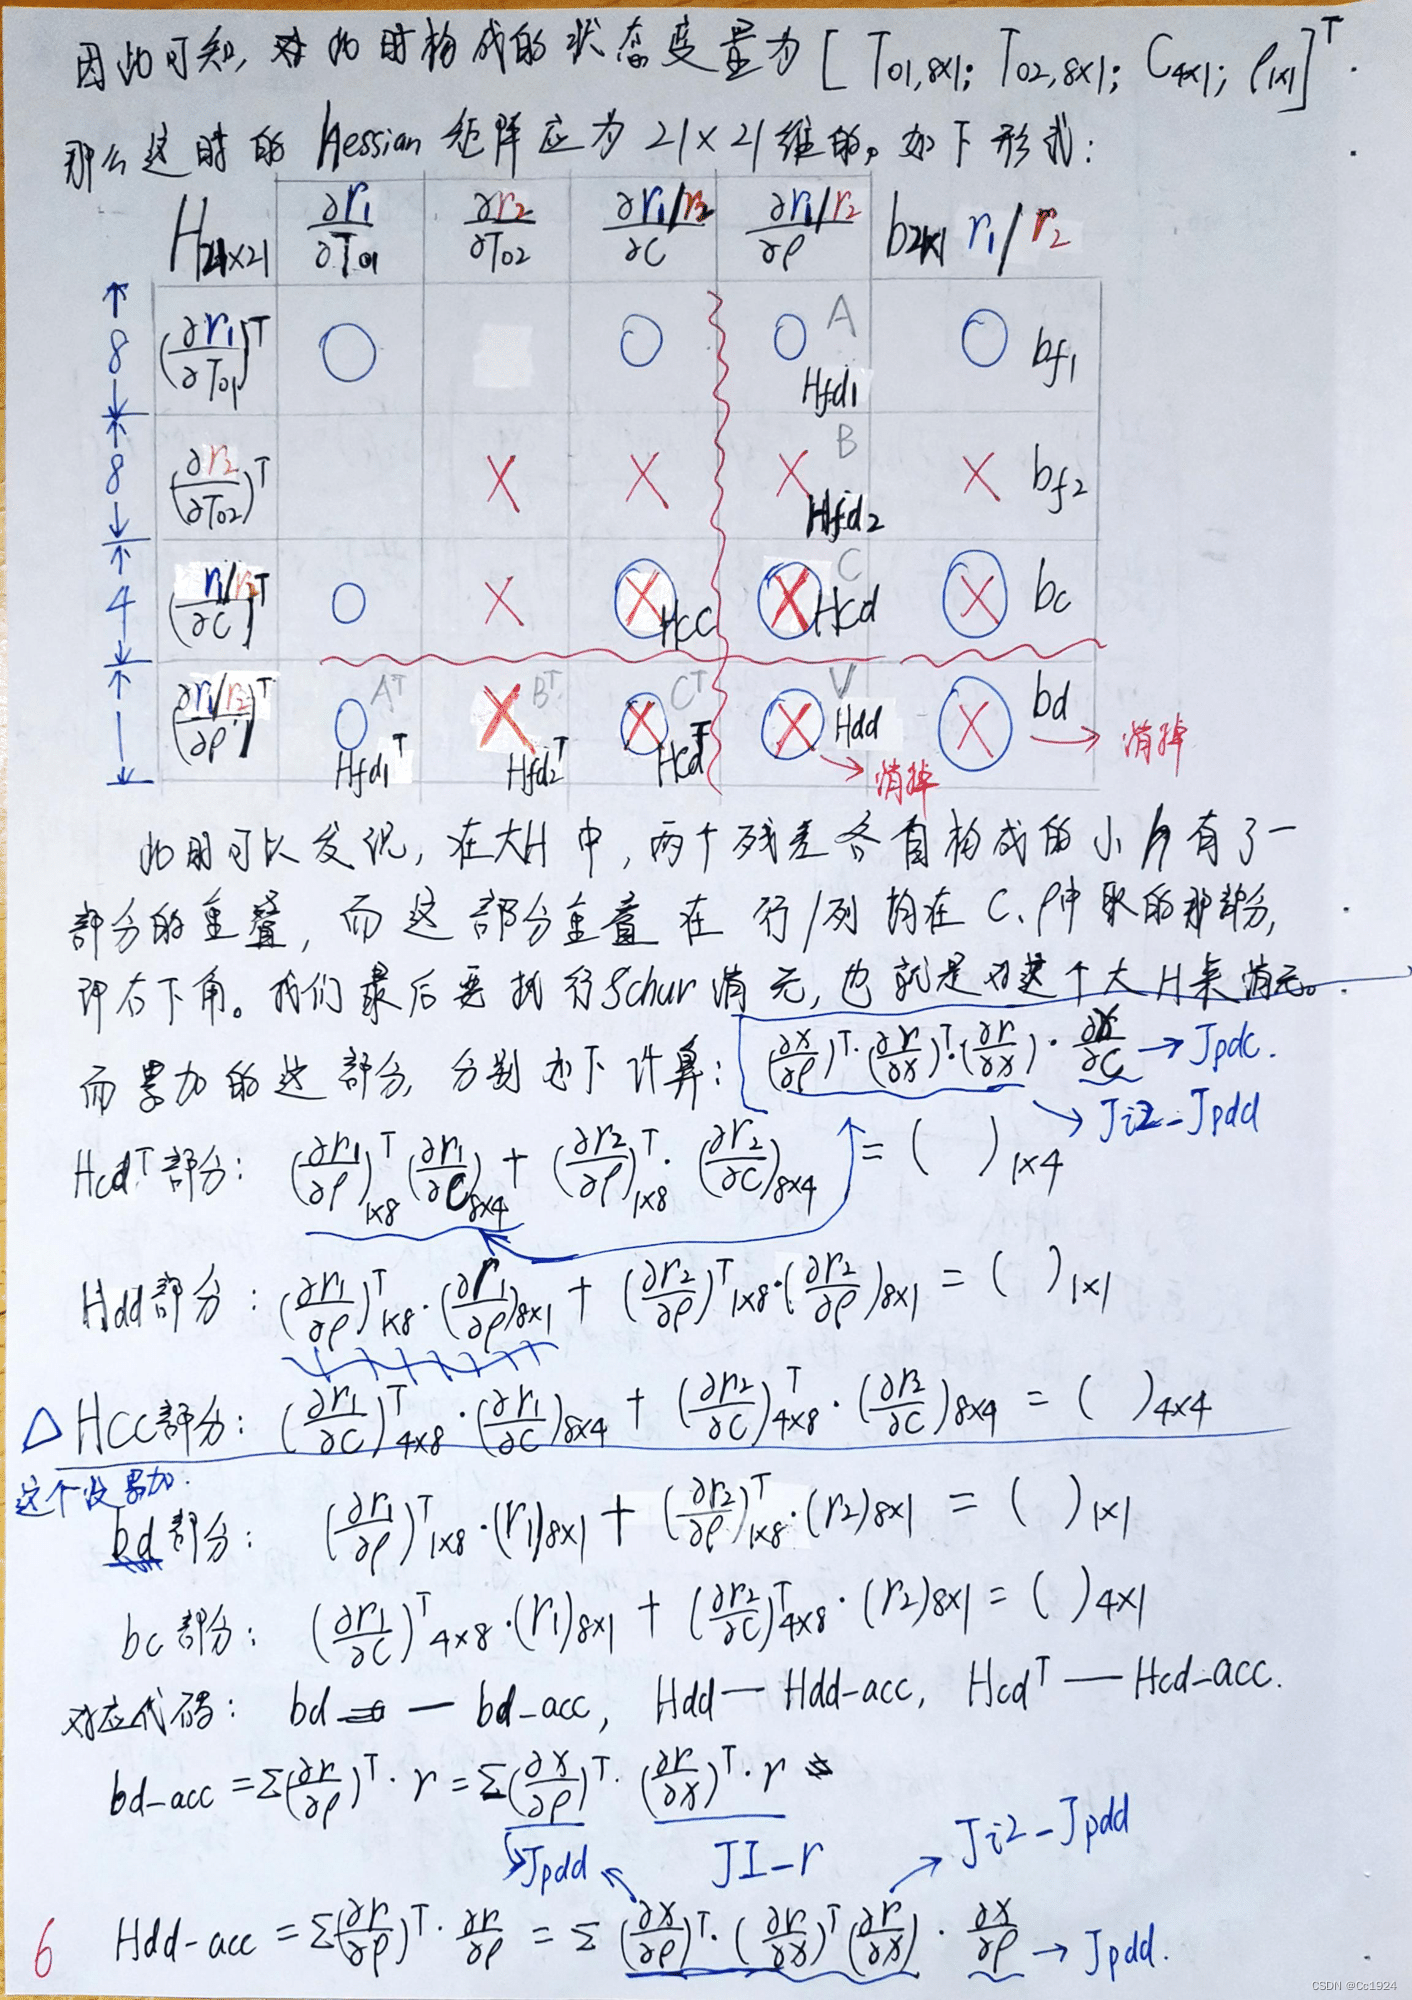 因此可知, 此时构成的状态变量为 [T01,8×1; T02,8×1; C4×1; ρ1×1]ᵀ.
那么这时的 Hessian 矩阵应为 21×21维的, 如下形式:
H21×21 ∂r1/∂T01 ∂r2/∂T02 ∂r1/r2/∂C ∂r1/r2/∂ρ b21×1 r1/r2
8 (∂r1/∂T01)ᵀ ○ ○ ○ A Hfd1 ○ bf1
8 (∂r2/∂T02)ᵀ × × × B Hfd2 × bf2
4 (r1/r2/∂C)ᵀ ○ × × Hcc × C Hcd × bc
1 (∂r1/r2/∂ρ)ᵀ ○ Aᵀ Hfd1ᵀ × Bᵀ Hfd2ᵀ × Cᵀ Hcdᵀ × V Hdd × bd → 消掉
→ 消掉
此时可以发现, 在大H中, 两个残差各自构成的小H有了一
部分的重叠, 而这部分重叠在 行/列 均在 C、ρ中取的那部分,
即右下角。我们最后要执行Schur消元, 也就是对这个大H来消元。
而累加的这部分, 分别如下计算: (∂x/∂ρ)ᵀ·(∂r/∂x)ᵀ·(∂r/∂x)·∂x/∂C → Jpdc.
→ Ji2-Jpdd
Hcdᵀ部分: (∂r1/∂ρ)ᵀ1×8 (∂r1/∂C)8×4 + (∂r2/∂ρ)ᵀ1×8·(∂r2/∂C)8×4 = ( )1×4
Hdd部分: (∂r1/∂ρ)ᵀ1×8·(∂r1/∂ρ)8×1 + (∂r2/∂ρ)ᵀ1×8·(∂r2/∂ρ)8×1 = ( )1×1
△ Hcc部分: (∂r1/∂C)ᵀ4×8·(∂r1/∂C)8×4 + (∂r2/∂C)ᵀ4×8·(∂r2/∂C)8×4 = ( )4×4
这个没累加.
bd部分: (∂r1/∂ρ)ᵀ1×8·(r1)8×1 + (∂r2/∂ρ)ᵀ1×8·(r2)8×1 = ( )1×1
bc部分: (∂r1/∂C)ᵀ4×8·(r1)8×1 + (∂r2/∂C)ᵀ4×8·(r2)8×1 = ( )4×1
对应代码: bd — bd-acc, Hdd — Hdd-acc, Hcdᵀ — Hcd-acc.
bd-acc = Σ(∂r/∂ρ)ᵀ·r = Σ(∂x/∂ρ)ᵀ·(∂r/∂x)ᵀ·r
Jpdd JI-r Ji2-Jpdd
6 Hdd-acc = Σ(∂r/∂ρ)ᵀ·∂r/∂ρ = Σ(∂x/∂ρ)ᵀ·(∂r/∂x)ᵀ(∂r/∂x)·∂x/∂ρ → Jpdd.
CSDN @Cc1924